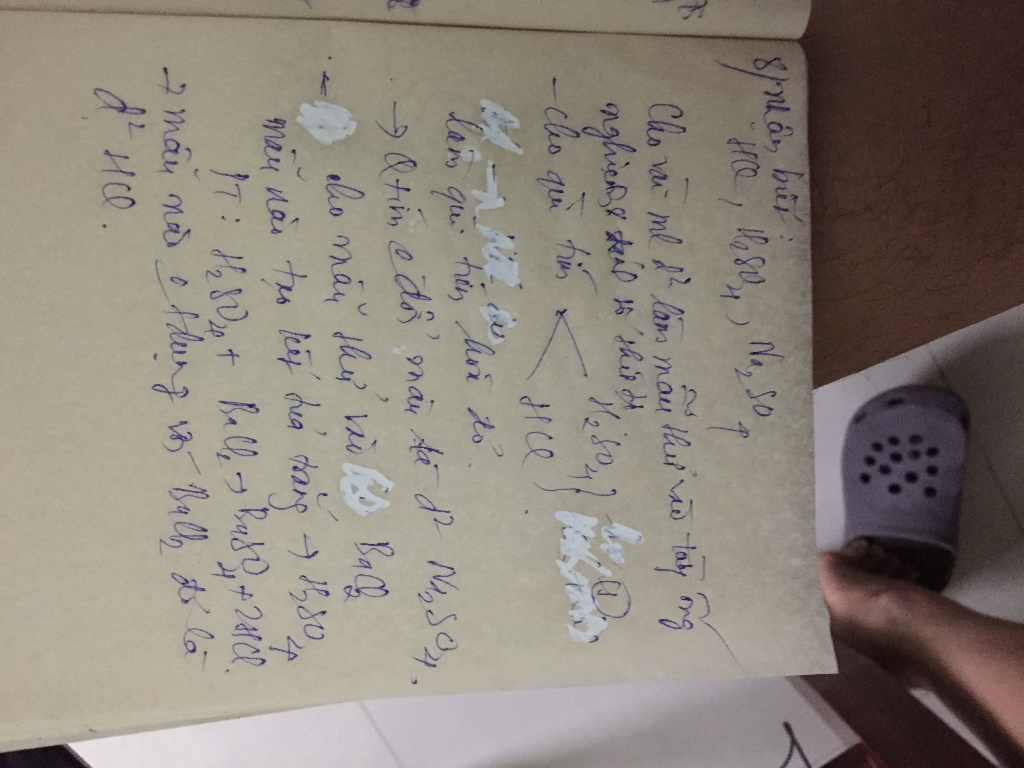 8) nhận biết:
HCl, H₂SO₄, Na₂SO₄
Cho vài ml d² làm mẫu thử vào từng ống
nghiệm
- Cho quì tím < H₂SO₄ } ①
HCl }
làm quì tím hóa đỏ.
→ Q tím o đổi màu là d² Na₂SO₄.
- cho mẫu thử vào BaCl₂
mẫu nào tạo kết tủa trắng → H₂SO₄
PT: H₂SO₄ + BaCl₂ → BaSO₄ + 2HCl
→ mẫu nào o t dụng với BaCl₂ đó là
d² HCl.